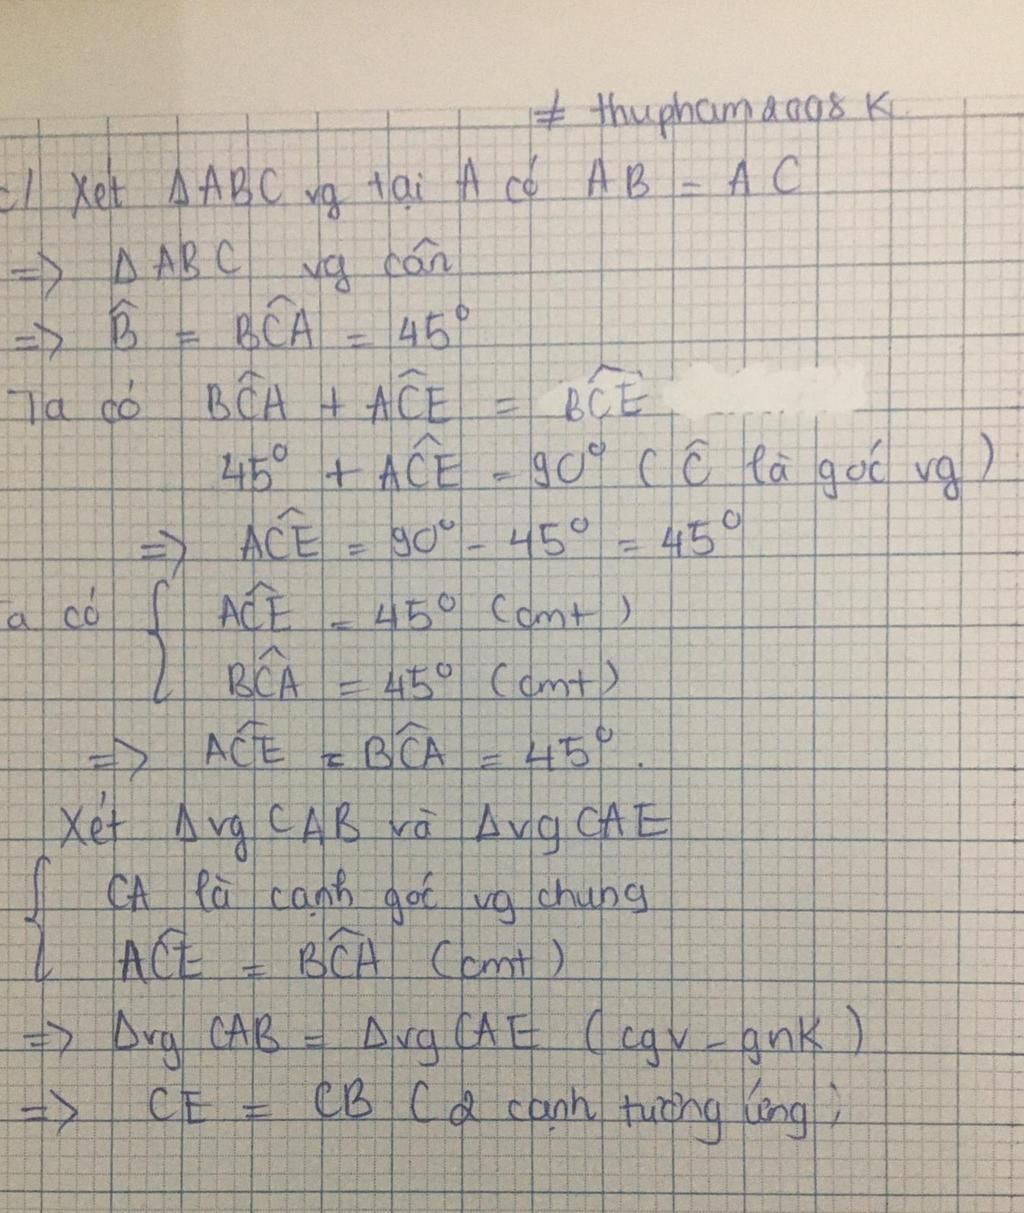 ≠ thupham2008 K.
c/ Xét ΔABC vg tại A có AB = AC
=> ΔABC vg cân
=> B̂ = BĈA = 45°
Ta có BĈA + AĈE = BĈE
45° + AĈE = 90° ( Ĉ là góc vg )
=> AĈE = 90° - 45° = 45°
a có { AĈE = 45° (cmt)
BĈA = 45° (cmt)
=> AĈE = BĈA = 45°.
Xét Δvg CAB và Δvg CAE
{ CA là cạnh góc vg chung
AĈE = BĈA (cmt)
=> Δvg CAB = Δvg CAE (cgv - gnK)
=> CE = CB ( 2 cạnh tương ứng )